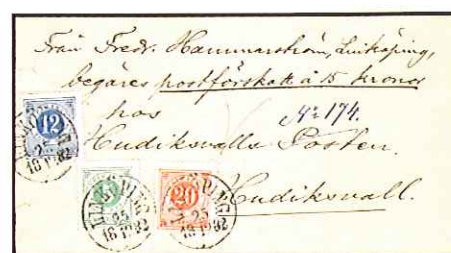 Från Fredr. Hammarström, Linköping,
begäres postförskott à 15 kronor
hos
No 174.
Hudiksvalls Posten.
Hudiksvall.
12
20
LINKÖPING
25
1882